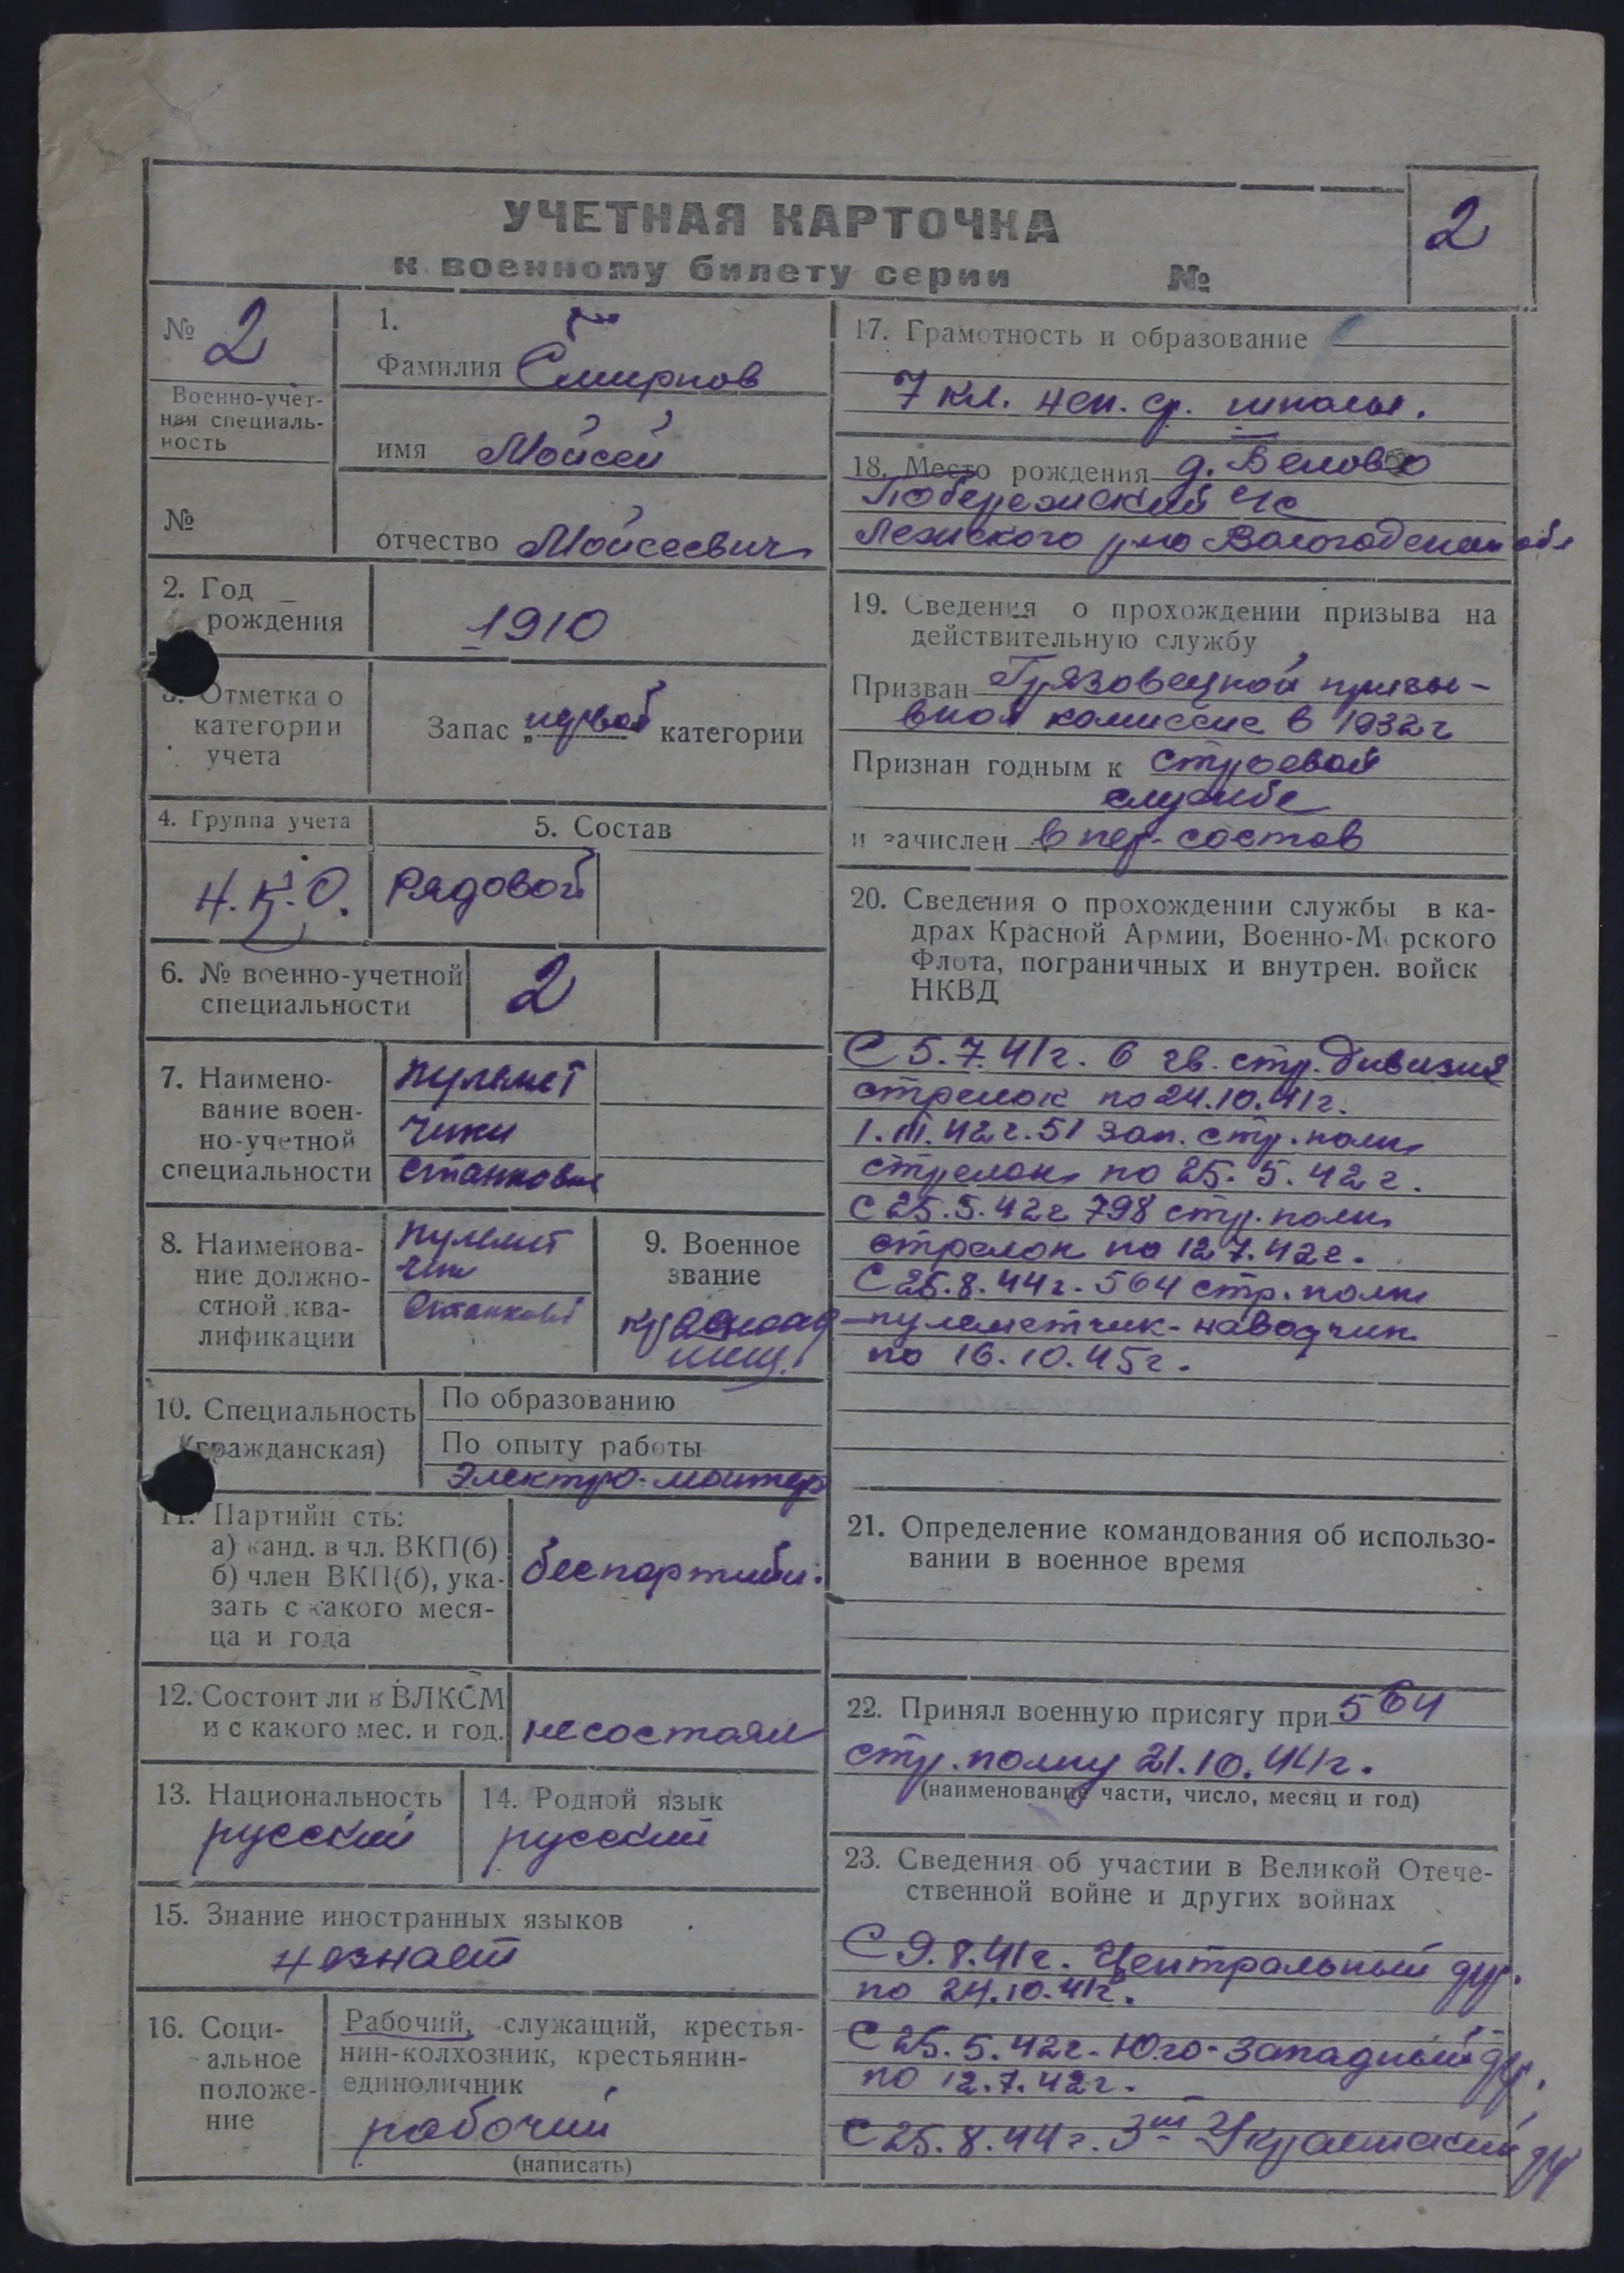 УЧЕТНАЯ КАРТОЧКА
к военному билету серии №
2
№ 2
Военно-учет-
ная специаль-
ность
№
1.
Фамилия Смирнов
имя Мойсей
отчество Мойсеевич
2. Год
рождения
1910
3. Отметка о
категории
учета
Запас „первой категории
4. Группа учета
Н.К.О.
5. Состав
Рядовой
6. № военно-учетной
специальности
2
7. Наимено-
вание воен-
но-учетной
специальности
пулемет
чики
станковые
8. Наименова-
ние должно-
стной ква-
лификации
пулемет
чик
станковый
9. Военное
звание
красноар
меец.
10. Специальность
(гражданская)
По образованию
По опыту работы
Электро-монтер
11. Партийн сть:
а) канд. в чл. ВКП(б)
б) член ВКП(б), ука-
зать с какого меся-
ца и года
беспартийн.
12. Состоит ли в ВЛКСМ
и с какого мес. и год.
не состоял
13. Национальность
русский
14. Родной язык
русский
15. Знание иностранных языков
незнает
16. Соци-
альное
положе-
ние
Рабочий, служащий, крестья-
нин-колхозник, крестьянин-
единоличник
рабочий
(написать)
17. Грамотность и образование
7 кл. неп. ср. школы.
18. Место рождения д. Белово
Побережский с/с
Лежского р-на Вологодской обл
19. Сведения о прохождении призыва на
действительную службу
Призван Грязовецкой призы-
вной комиссие в 1932г
Признан годным к строевой
службе
и зачислен в пер. состав
20. Сведения о прохождении службы в ка-
драх Красной Армии, Военно-М рского
Флота, пограничных и внутрен. войск
НКВД
С 5.7.41г. 6 гв. стр. дивизия
стрелок по 24.10.41г.
1.III.42г. 51 зап. стр. полк
стрелок по 25.5.42г.
С 25.5.42г 798 стр. полк
стрелок по 12.7.42г.
С 25.8.44г. 564 стр. полк
пулеметчик-наводчик
по 16.10.45г.
21. Определение командования об использо-
вании в военное время
22. Принял военную присягу при 564
стр. полку 21.10.44г.
(наименование части, число, месяц и год)
23. Сведения об участии в Великой Отече-
ственной войне и других войнах
С 9.8.41г. Центральный фр.
по 24.10.41г.
С 25.5.42г. Юго-Западный фр.
по 12.7.42г.
С 25.8.44г. 3ий Украинский фр